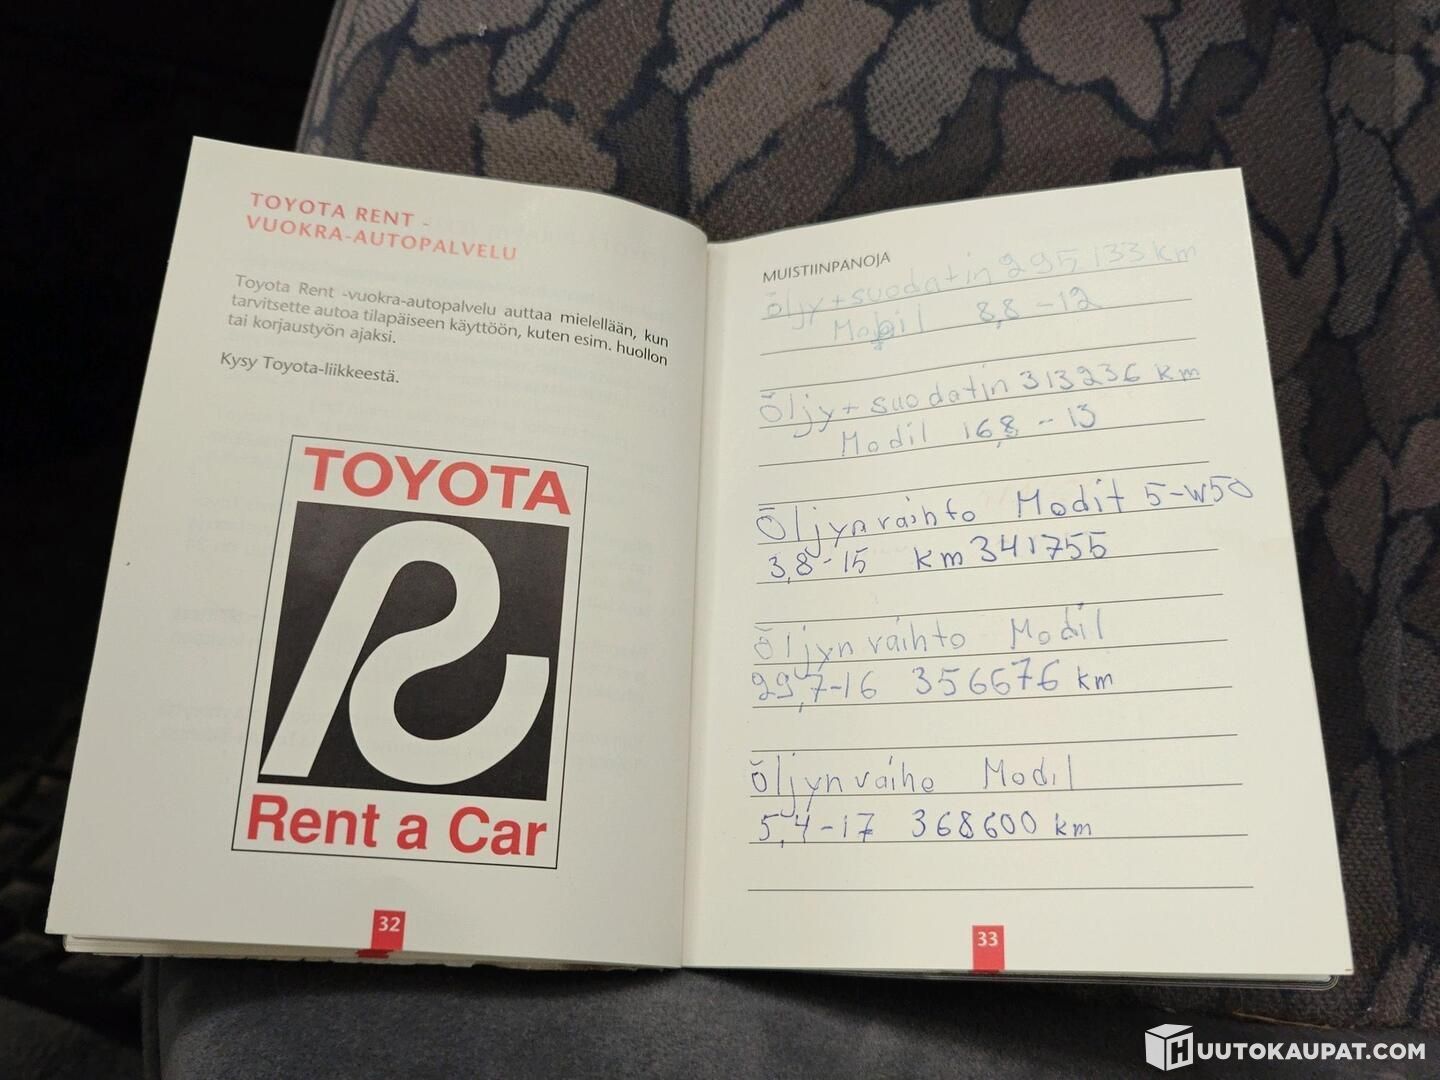 TOYOTA RENT -
VUOKRA-AUTOPALVELU
Toyota Rent -vuokra-autopalvelu auttaa mielellään, kun
tarvitsette autoa tilapäiseen käyttöön, kuten esim. huollon
tai korjaustyön ajaksi.
Kysy Toyota-liikkeestä.
TOYOTA
Rent a Car
32
MUISTIINPANOJA
Öljy + suodatin 295133 km
Mobil 8,8-12
Öljy + suodatin 313236 km
Modil 16,8-13
Öljyn vaihto Modit 5-W50
3,8-15 km 341755
Öljyn vaihto Modil
29,7-16 356676 km
Öljyn vaihe Modil
5,4-17 368600 km
33
HUUTOKAUPAT.COM